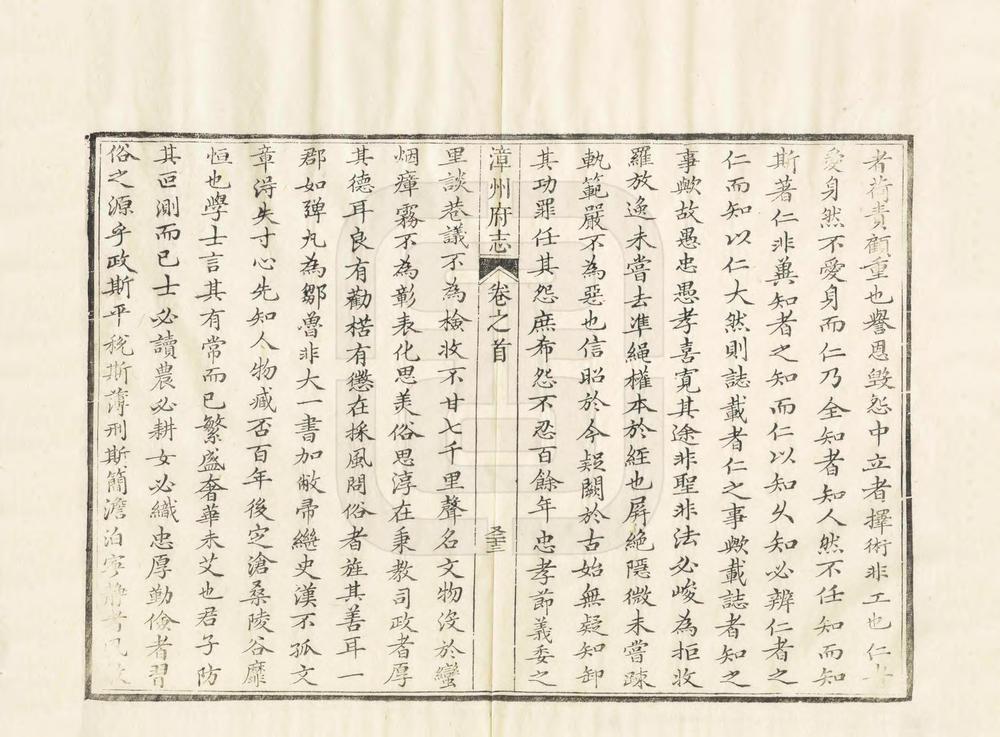 者術責顧重也譽恩毀怨中立者擇術非工也仁者
愛身然不愛身而仁乃全知者知人然不任知而知
斯著仁非異知者之知而仁以知久知必辨仁者之
仁而知以仁大然則誌載者仁之事歟載誌者知之
事歟故愚忠愚孝喜寬其途非聖非法必峻為拒收
羅放逸未嘗去準繩權本於經也屏絕隱微未嘗疎
軌範嚴不為惡也信昭於今疑闕於古始無疑知卸
其功罪任其怨庶布怨不忍百餘年忠孝節義委之
漳州府志 卷之首
里談巷議不為檢收不甘七千里聲名文物沒於蠻
烟瘴霧不為彰表化思美俗思淳在秉教司政者厚
其德耳良有勸楛有懲在採風問俗者旌其善耳一
郡如彈丸為鄒魯非大一書加敝帚繼史漢不孤文
章得失寸心先知人物臧否百年後定滄桑陵谷靡
恒也學士言其有常而已繁盛奢華未艾也君子防
其叵測而已士必讀農必耕女必織忠厚勤儉者習
俗之源乎政斯平稅斯薄刑斯簡澹泊寧靜者風